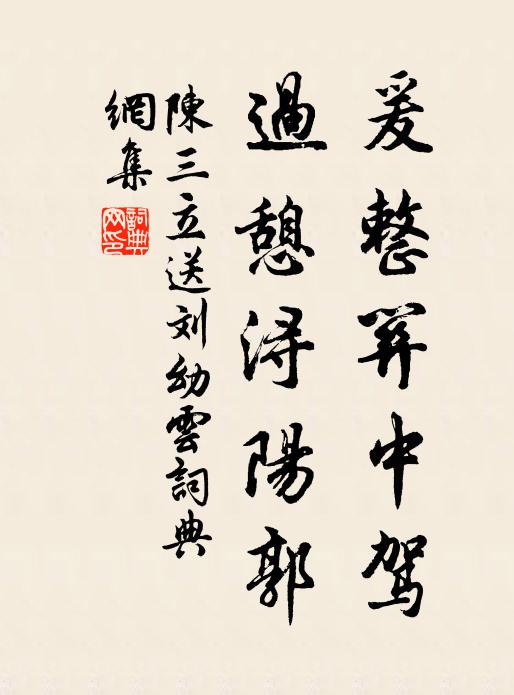 爰整關中駕
過憩潯陽郭
陳三立送刘幼雲詞典
網集
詞典网印